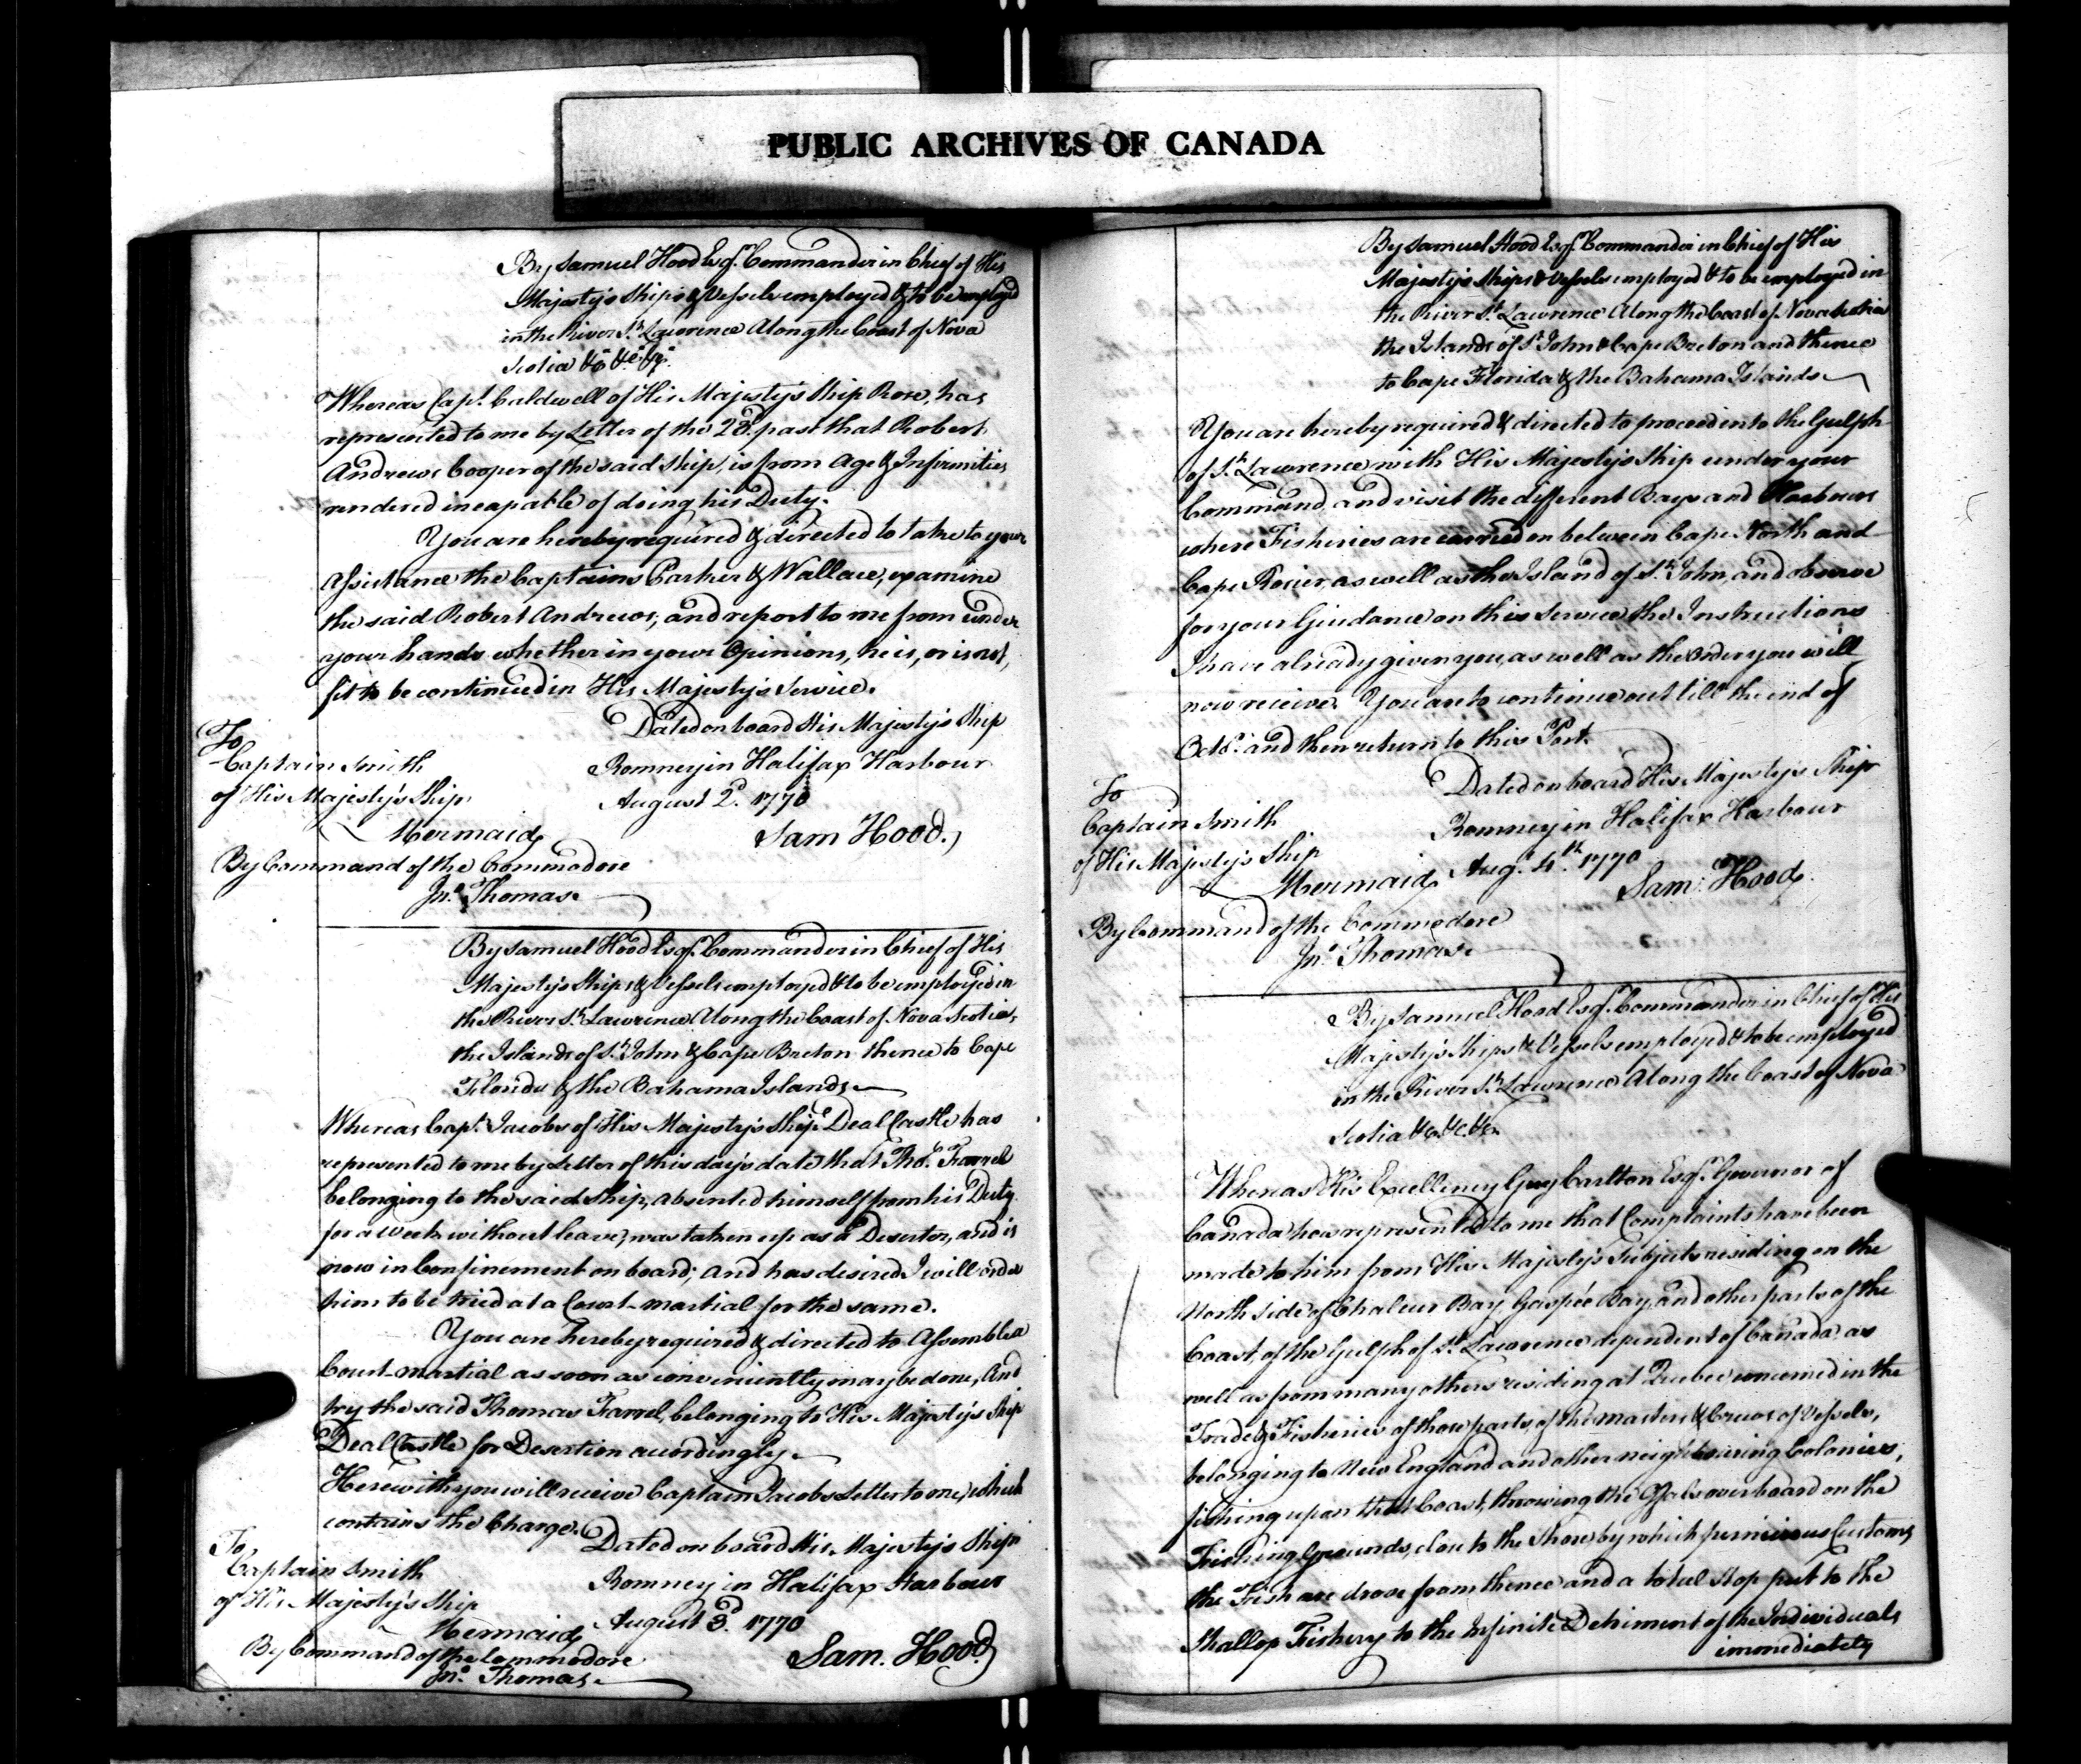 PUBLIC ARCHIVES OF CANADA
By Samuel Hood Esqr. Commander in Chief of His
Majesty's Ships & Vessels employed & to be employed
in the River St. Lawrence Along the Coast of Nova
Scotia &c. &c. &c.
Whereas Capt. Caldwell of His Majesty's Ship Rose, has
represented to me by Letter of the 28. past that Robert
Andrews Cooper of the said Ship, is from Age & Infirmities
rendered incapable of doing his Duty.
You are hereby required & directed to take to your
Assistance the Captains Parker & Wallace, examine
the said Robert Andrews, and report to me from under
your hands whether in your Opinions, he is, or is not,
fit to be continued in His Majesty's Service.
Dated on board His Majesty's Ship
Romney in Halifax Harbour
August 2d. 1770
Sam Hood.
To
Captain Smith
of His Majesty's Ship
Mermaid
By Command of the Commodore
Jno. Thomas.
By Samuel Hood Esqr. Commander in Chief of His
Majesty's Ships & Vessels employed & to be employed in
the River St. Lawrence Along the Coast of Nova Scotia,
the Islands of St. John & Cape Breton thence to Cape
Florida & the Bahama Islands
Whereas Capt. Jacobs of His Majesty's Ship Deal Castle has
represented to me by Letter of this day's date that Thos. Farrel
belonging to the said Ship, absented himself from his Duty
for a Week without leave, was taken up as a Deserter, and is
now in Confinement on board; And has desired I will order
him to be tried at a Court-martial for the same.
You are hereby required & directed to Assemble a
Court-martial as soon as conveniently may be done, And
try the said Thomas Farrel, belonging to His Majesty's Ship
Deal Castle for Desertion accordingly.
Herewith you will receive Captain Jacobs Letter to me, which
contains the Charge.
Dated on board His Majesty's Ship
Romney in Halifax Harbour
August 3d. 1770
Sam. Hood
To
Captain Smith
of His Majesty's Ship
Mermaid
By Command of the Commodore
Jno. Thomas.
By Samuel Hood Esqr. Commander in Chief of His
Majesty's Ships & Vessels employed & to be employed in
the River St. Lawrence Along the Coast of Nova Scotia
the Islands of St. John & Cape Breton and thence
to Cape Florida & the Bahama Islands
You are hereby required & directed to proceed into the Gulph
of St. Lawrence with His Majesty's Ship under your
Command, and visit the different Bays and Harbours
where Fisheries are carried on between Cape North and
Cape Rosier, as well as the Island of St. John, and observe
for your Guidance on this Service the Instructions
I have already given you, as well as the Order you will
now receive. You are to continue out till the end of
Octbr. and then return to this Port.
Dated on board His Majesty's Ship
Romney in Halifax Harbour
Augt. 4th. 1770
Sam: Hood.
To
Captain Smith
of His Majesty's Ship
Mermaid
By Command of the Commodore
Jno. Thomas
By Samuel Hood Esqr. Commander in Chief of His
Majesty's Ships & Vessels employed & to be employed
in the River St. Lawrence Along the Coast of Nova
Scotia &c. &c. &c.
Whereas His Excellency Guy Carlton Esqr. Governor of
Canada has represented to me that Complaints have been
made to him from His Majesty's Subjects residing on the
North side of Chaleur Bay, Gaspée Bay, and other parts of the
Coast, of the Gulph of St. Lawrence dependent of Canada, as
well as from many others residing at Quebec, concerned in the
Trade & Fisheries of those parts, of the masters & Crews of Vessels,
belonging to New England and other neighbouring Colonies,
fishing upon that Coast, throwing the Offals overboard on the
Fishing Grounds, close to the Shore, by which pernicious Customs
the Fish are drove from thence and a total Stop put to the
Shallop Fishery to the Infinite Detriment of the Individuals
immediately